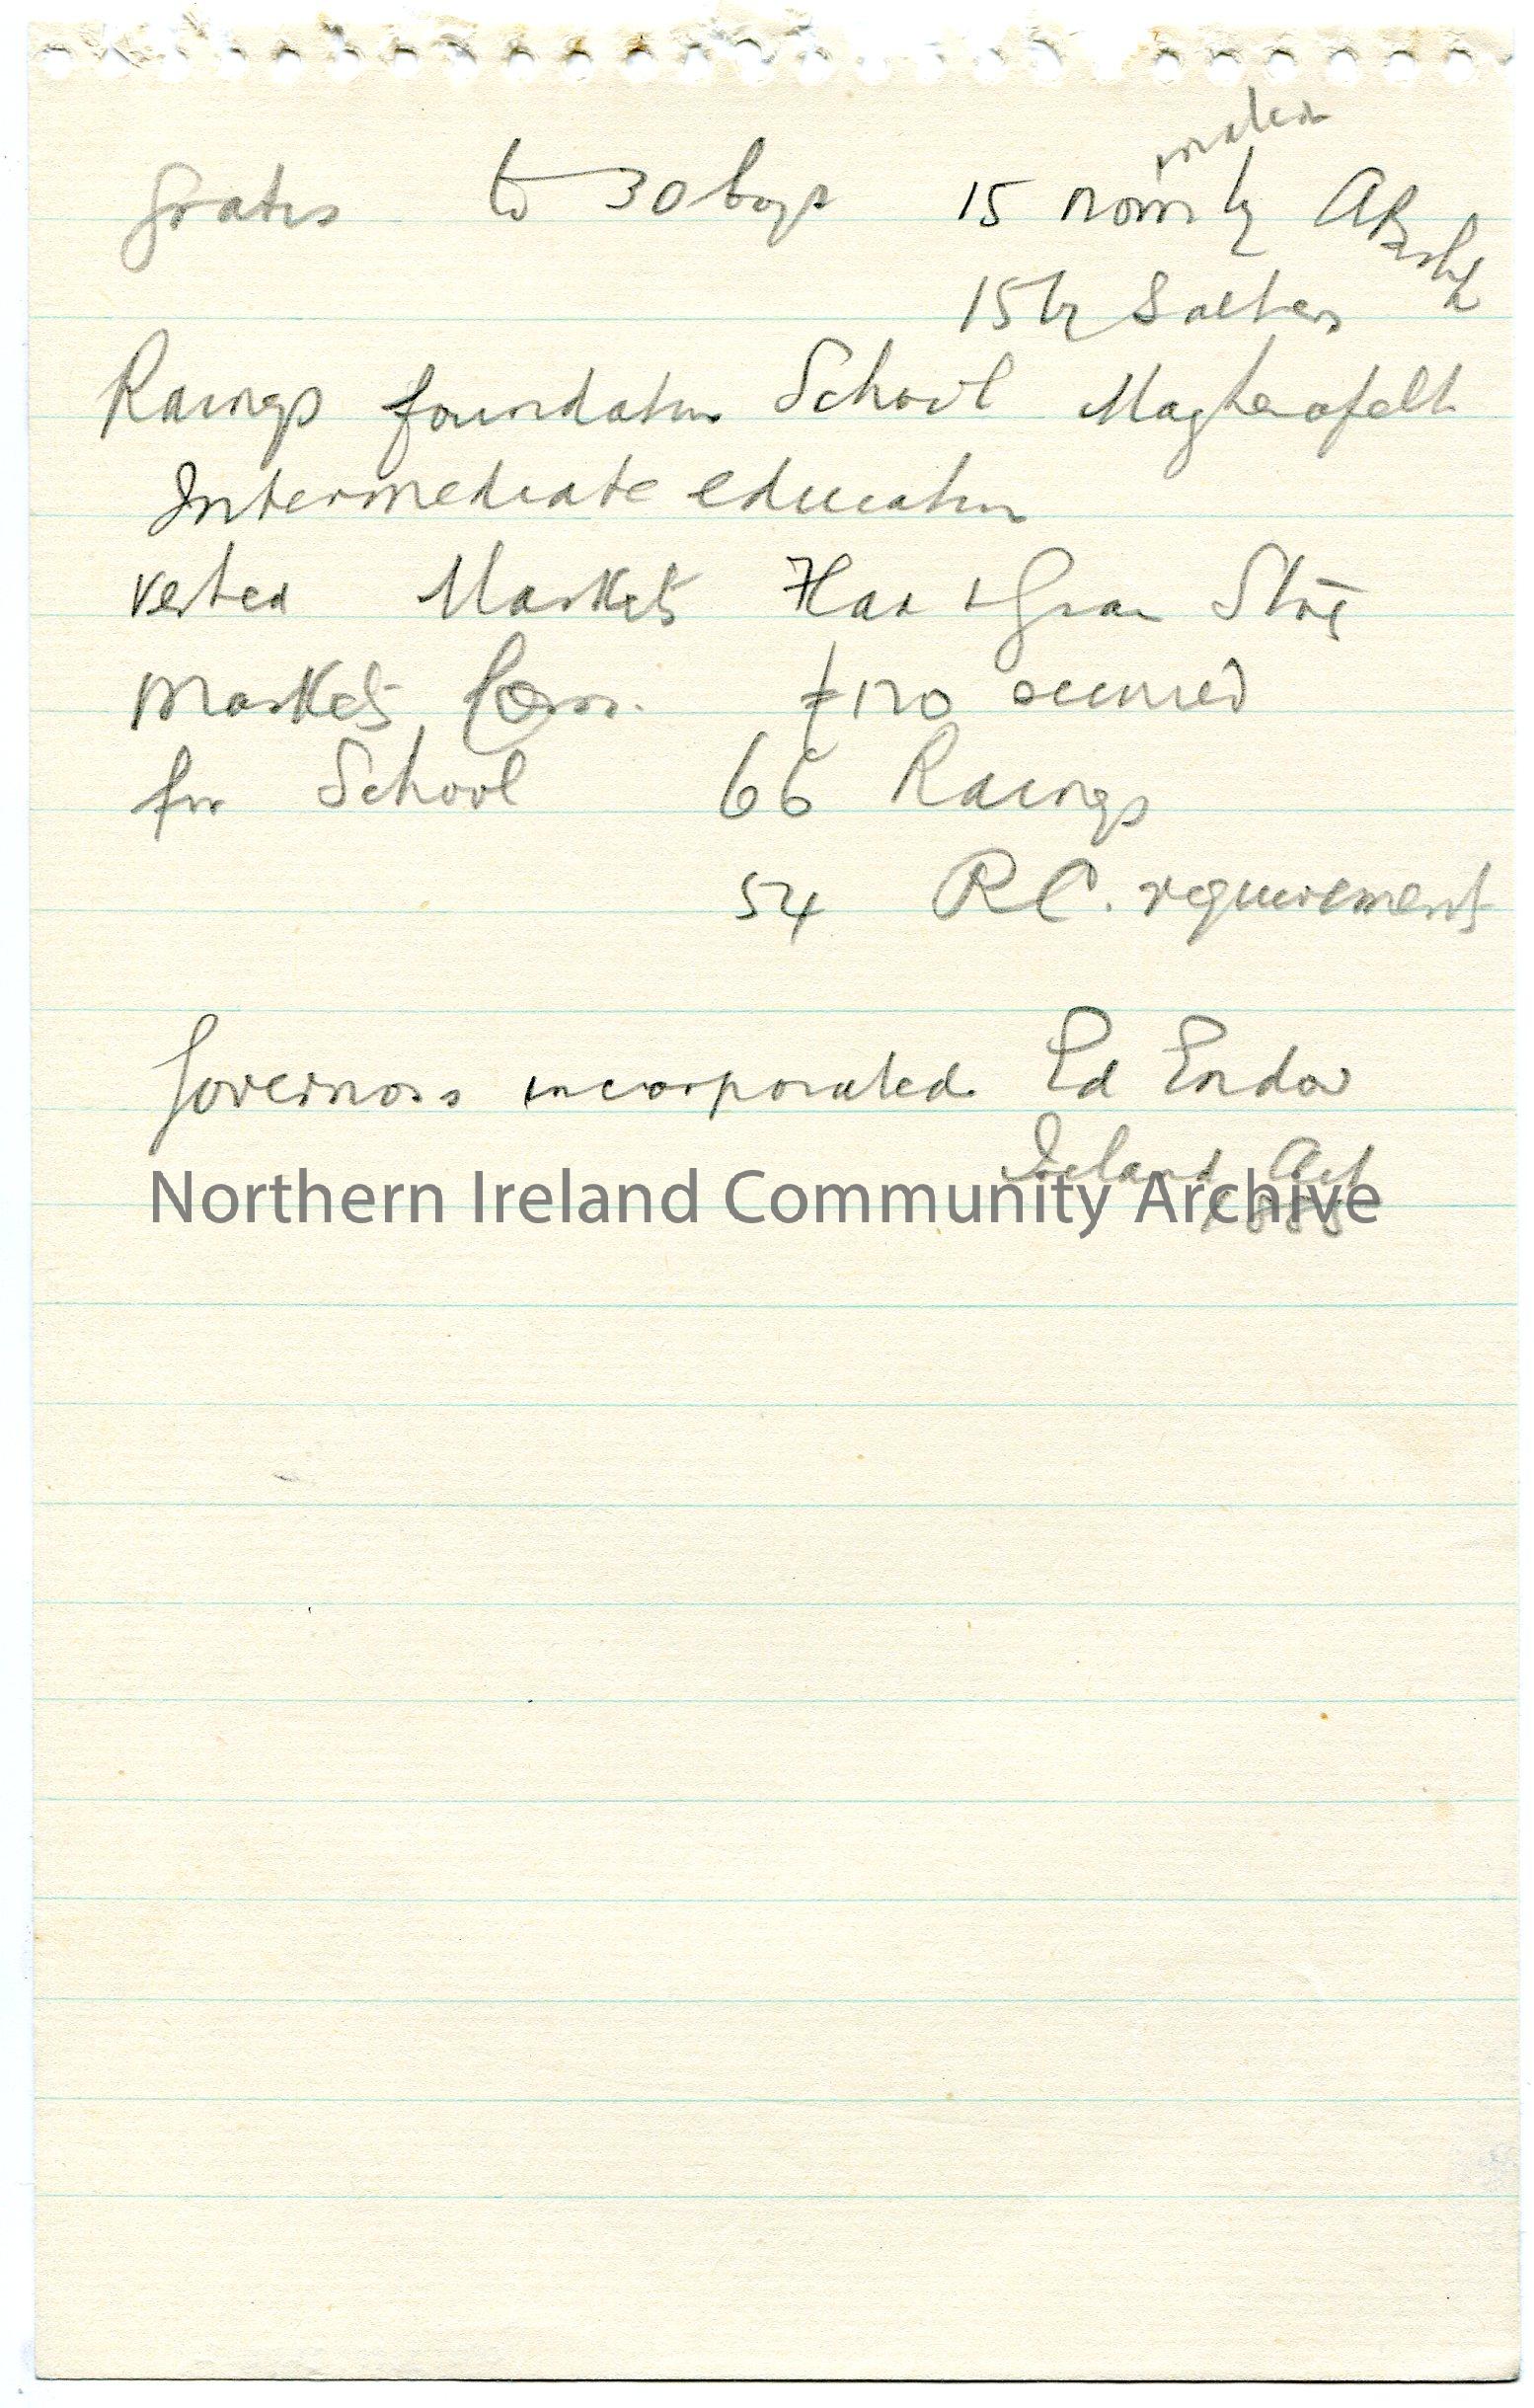 Gratis to 30 boys 15 nominated by ABshp
15 by Salters
Raineys foundation School Magherafelt
Intermediate education
vested Markets Flax + Grain Store
Markets Com. £120 secured
for School 66 Raineys
54 RC. requirements
Governors incorporated Ed Endow
Ireland Act
1885
Northern Ireland Community Archive